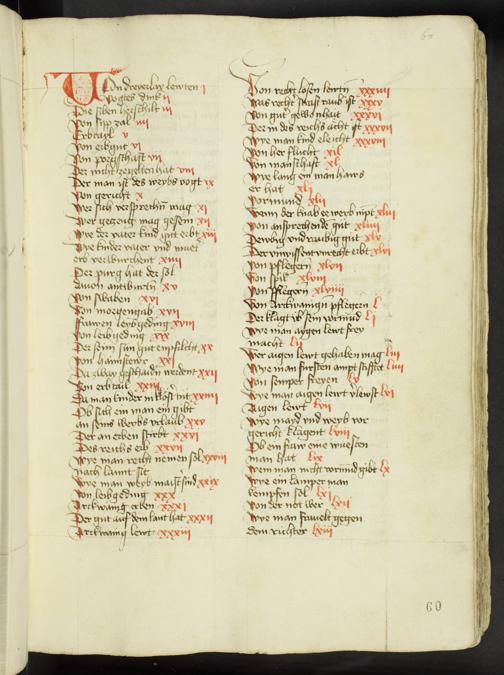 60
Von dreyerlay lewten i
Vogtes dink ii
Die siben herschilt iii
Von sipp zal iiii
Erbtayl v
Von erbgut vi
Von porgschaft vii
Der nicht zegelten hat viii
Der man ist des weybs vogt ix
Von gericht x
Wer sich versprechn mag xi
Wer gezeug mag gesein xii
Wie der vater kind gut erbt xiii
Wye kinder vater vnd muet
erb verlburchent xiiii
Der purg hat der sol
Auch antburtn xv
Von swaben xvi
Von morgengab xvii
Frawen leybgeding xviii
Von leibgeding xix
Der seim sun gut empfilcht xx
Von haimstewr xxi
Da zway geschaidn werdent xxii
Von erbtail xxiii
Da man kinder in klost tut xxiiii
Ob sich ein man ein gibt
an seins weybs vrlaub xxv
Der an erben stirbt xxvi
Des reichs erb xxvii
Wye man recht nemen sol xxviii
nach lannt sit
Wye man weyb maist sind xxix
Von leibgeding xxx
Arckwanig erben xxxi
Der gut auf dem lant hat xxxii
Arckwanig lewt xxxiii
Von recht losen lewtn xxxiiii
Was recht strass raub ist xxxv
Von gut gewonhait xxxvi
Der in des reichs acht ist xxxvii
Wye man kind eleicht xxxviii
Von her flucht xxxix
Von manschaft xl
Wye lang ein man haws
er hat xli
Vormund xlii
Wenn der knab ee weyb nimpt xliii
Von ansprechende gut xliiii
Dewbig vnd raubig gut xlv
Der vnwissent vnrecht erbt xlvi
Von pflegern xlvii
Von spil xlviii
Von pflegern xlviiii
Von Arckwanign pflegern l
Der klagt vb sein vrmud li
Wye man aygen lewt frey
macht lii
Wer aigen lewt gehaben mag liii
Wye man fursten ampt stifftet liiii
Von semper freyen lv
Wye man aigen lewt verlewst lvi
Aigen lewt lvii
Wye mayd vnd weyb vor
gericht klagent lviii
Ob ein fraw eine wuesten
man hat lix
Wem man nicht vormund gibt lx
Wye ein lamper man
kempfen sol lxi
Von der not wer lxii
Wye man frauelt gegen
dem richter lxiii
60